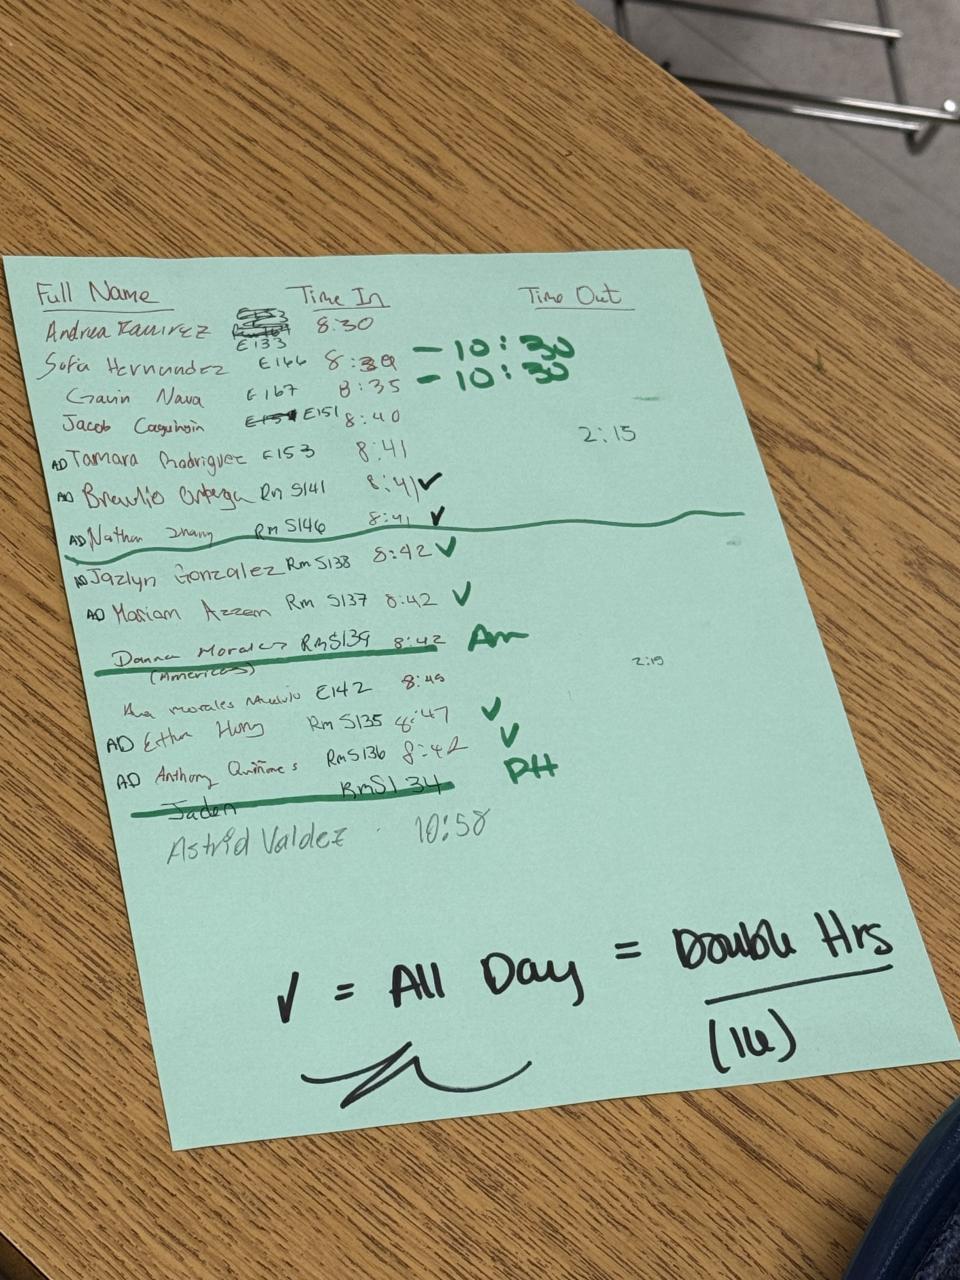 Full Name Time In Time Out
Andrea Ramirez E133 8:30
Sofia Hernandez E166 8:39 - 10:30
Gavin Nava E167 8:35 - 10:30
Jacob E151 8:40
AD Tamara Rodriguez E153 8:41 2:15
AD Braulio Ortega Rm S141 8:41 ✓
AD Nathan Rm S146 8:41 ✓
AD Jazlyn Gonzalez Rm S138 8:42 ✓
AD Mariam Azzam Rm S137 8:42 ✓
Danna Morales Rm S139 8:42 Am
(Americas)
Morales E142 8:45 2:15
AD Ethan Rm S135 8:47 ✓
AD Anthony Quiñones Rm S136 8:42 ✓
Jaden Rm S134 PM
Astrid Valdez 10:58
✓ = All Day = Double Hrs
(16)